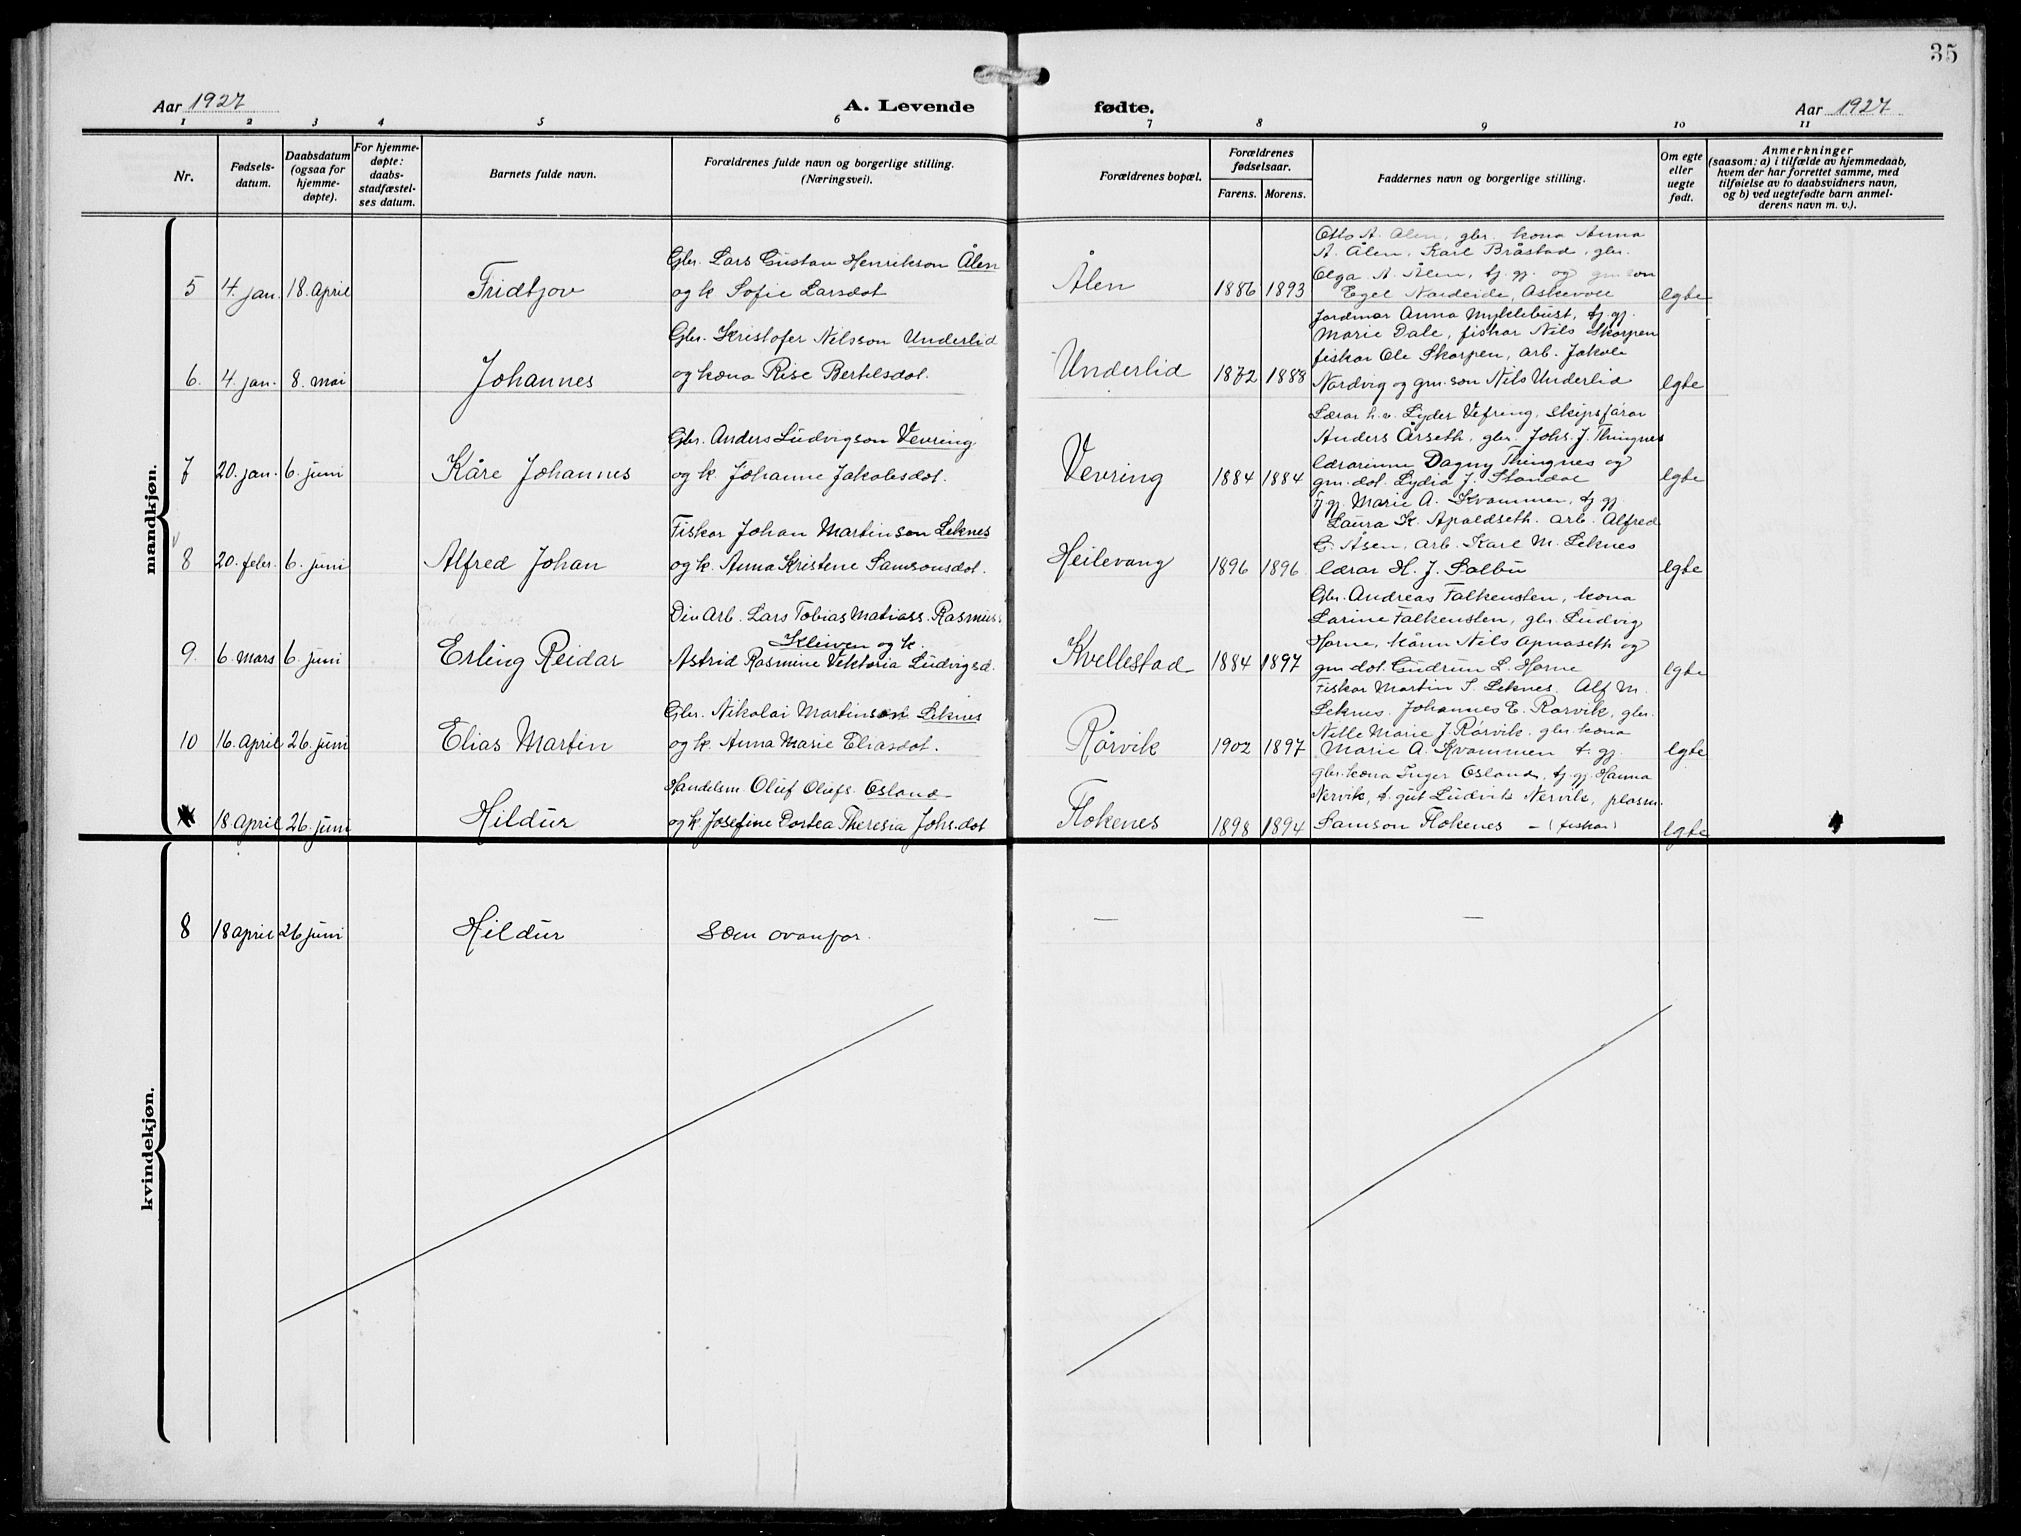 35
Aar 1927
A. Levende fødte.
Aar 1927
1 2 3 4 5 6 7 8 9 10 11
Nr.
Fødsels-
datum.
Daabsdatum
(ogsaa for
hjemme-
døpte).
For hjemme-
døpte:
daabs-
stadfæstel-
ses datum.
Barnets fulde navn.
Forældrenes fulde navn og borgerlige stilling.
(Næringsvei).
Forældrenes bopæl.
Forældrenes
fødselsaar.
Farens. Morens.
Faddernes navn og borgerlige stilling.
Om egte
eller
uegte
født.
Anmerkninger
(saasom: a) i tilfælde av hjemmedaab,
hvem der har forrettet samme, med
tilføielse av to daabsvidners navn,
og b) ved uegtefødte barn anmel-
derens navn m. v.).
mandkjøn.
5 4. jan. 18. April
Fridtjov
Gbr. Lars Gustav Henrikson Ålen
og k. Sofie Larsdot
Ålen
1886 1893
Otto A. Ålen, gbr. kona Anna
A. Ålen, Karl Bråstad, gbr.
Olga A. Ålen, tj. gj. og gm. son
Egel Nordeide, Askevoll
egte
6. 4. jan. 8. mai
Johannes
Gbr. Kristofer Nilsson Underlid
og kona Rise Bertelsdot.
Underlid
1872 1888
Jordmor Anna Myklebust, tj. gj.
Marie Dale, fiskar Nils Skorpen
fiskar Ole Skorpen, arb. Jakob
Nordvig og gm. son Nils Underlid
egte
7 20. jan. 6. juni
Kåre Johannes
Gbr. Anders Ludvigson Vevring
og k. Johanne Jakobsdot.
Vevring
1884 1884
Lærar h.v. Lyder Vefring, skipsførar
Anders Årseth, gbr. Johs. J. Thingnes
lærarinne Dagny Thingnes og
gm. dot. Lydia J. Standal
egte
8 20. febr. 6. juni
Alfred Johan
Fiskar Johan Martinson Leknes
og k. Anna Kristene Samsonsdot.
Heilevang
1896 1896
tj. gj. Marie A. Kvammen, tj. gj.
Laura K. Apaldseth. arb. Alfred
G. Åsen, arb. Karl M. Leknes
lærar H. J. Solbu
egte
9. 6. mars 6. juni
Erling Reidar
Div. Arb. Lars Tobias Matiass. Rasmus.
Kleiven og k.
Astrid Rasmine Viktoria Ludvigsd.
Kvellestad
1884 1897
Gbr. Andreas Falkensten, kona
Larine Falkensten, gbr. Ludvig
Horne, kårm. Nils Apnaseth og
gm. dot. Gudrun L. Horne
egte
10 16. April 26. juni
Elias Martin
Gbr. Nikolai Martinson Leknes
og k. Anna Marie Eliasdot.
Rørvik
1902 1897
Fiskar Martin S. Leknes. Alf M.
Leknes. Johannes E. Rørvik, gbr.
Nille Marie J. Rørvik. gbr. kona
Marie A. Kvammen t. gj.
egte
18 April 26. juni
Hildur
Handelsm. Oluf Olufs. Osland
og k. Josefine Dortea Theresia Johs.dot
Flokenes
1898 1894
gbr. kona Inger Osland, tj. gj. Hanna
Nervik, t. gut Ludvik Nervik, plasm.
Samson Flokenes – (fiskar)
egte
kvindekjøn.
8 18 april 26 juni
Hildur
Som ovanfor.
— —